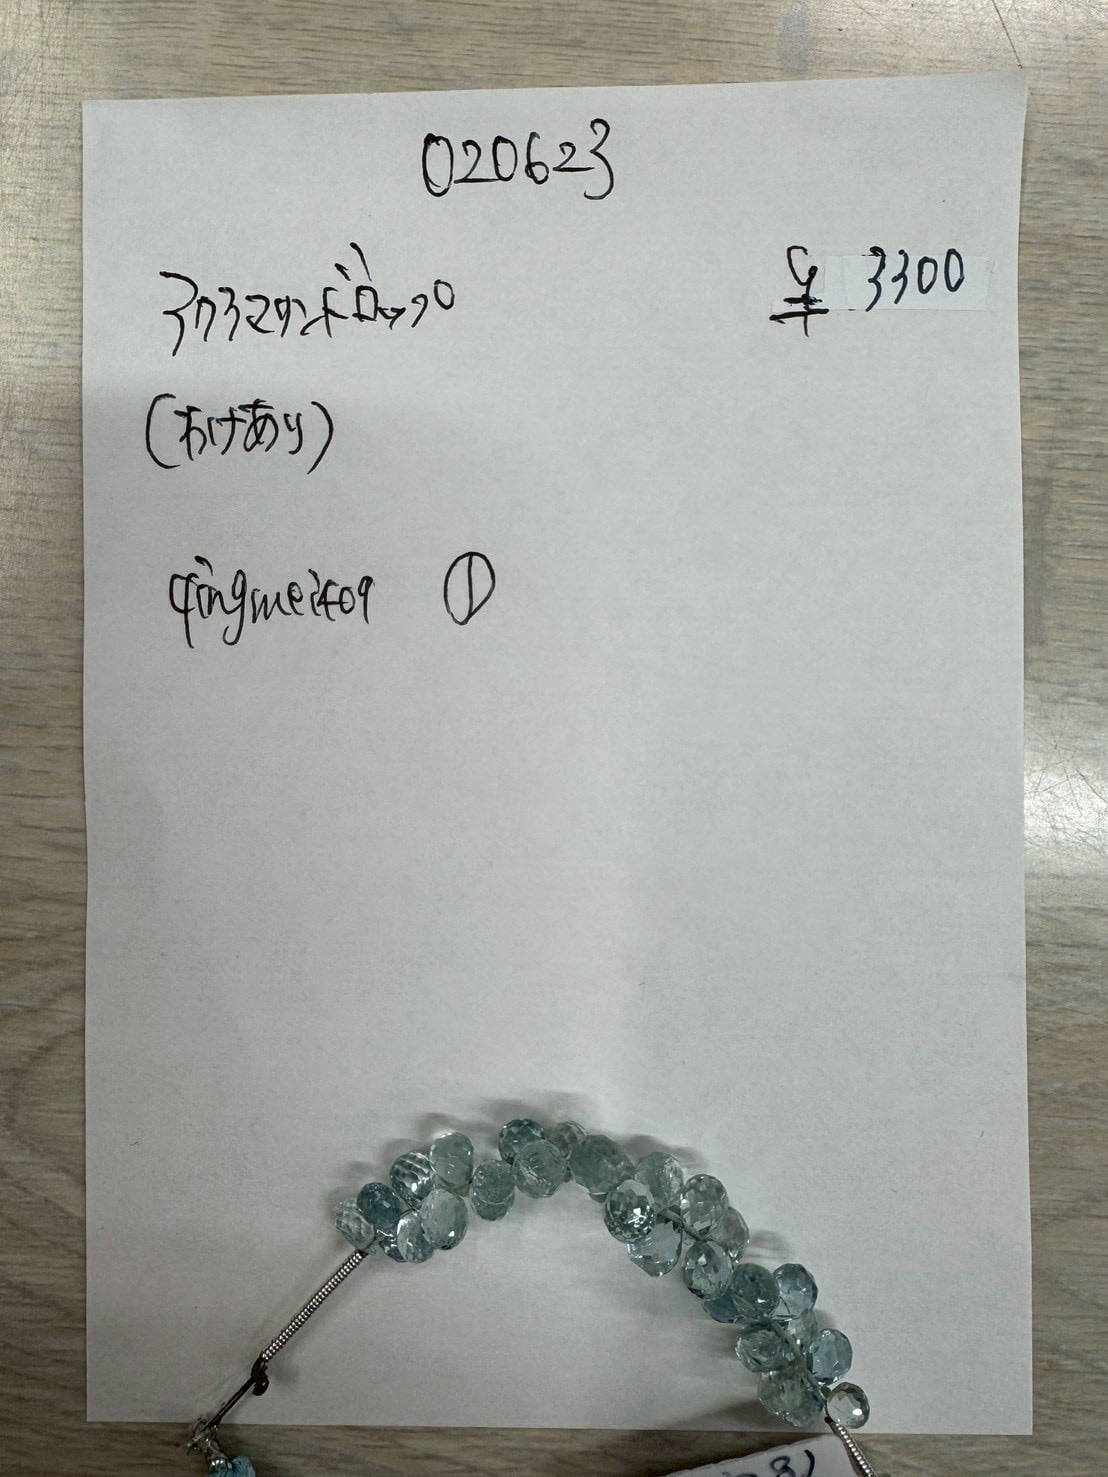 020623
アクアマリンドロップ ¥ 3300
(わけあり)
qingmei409 ①